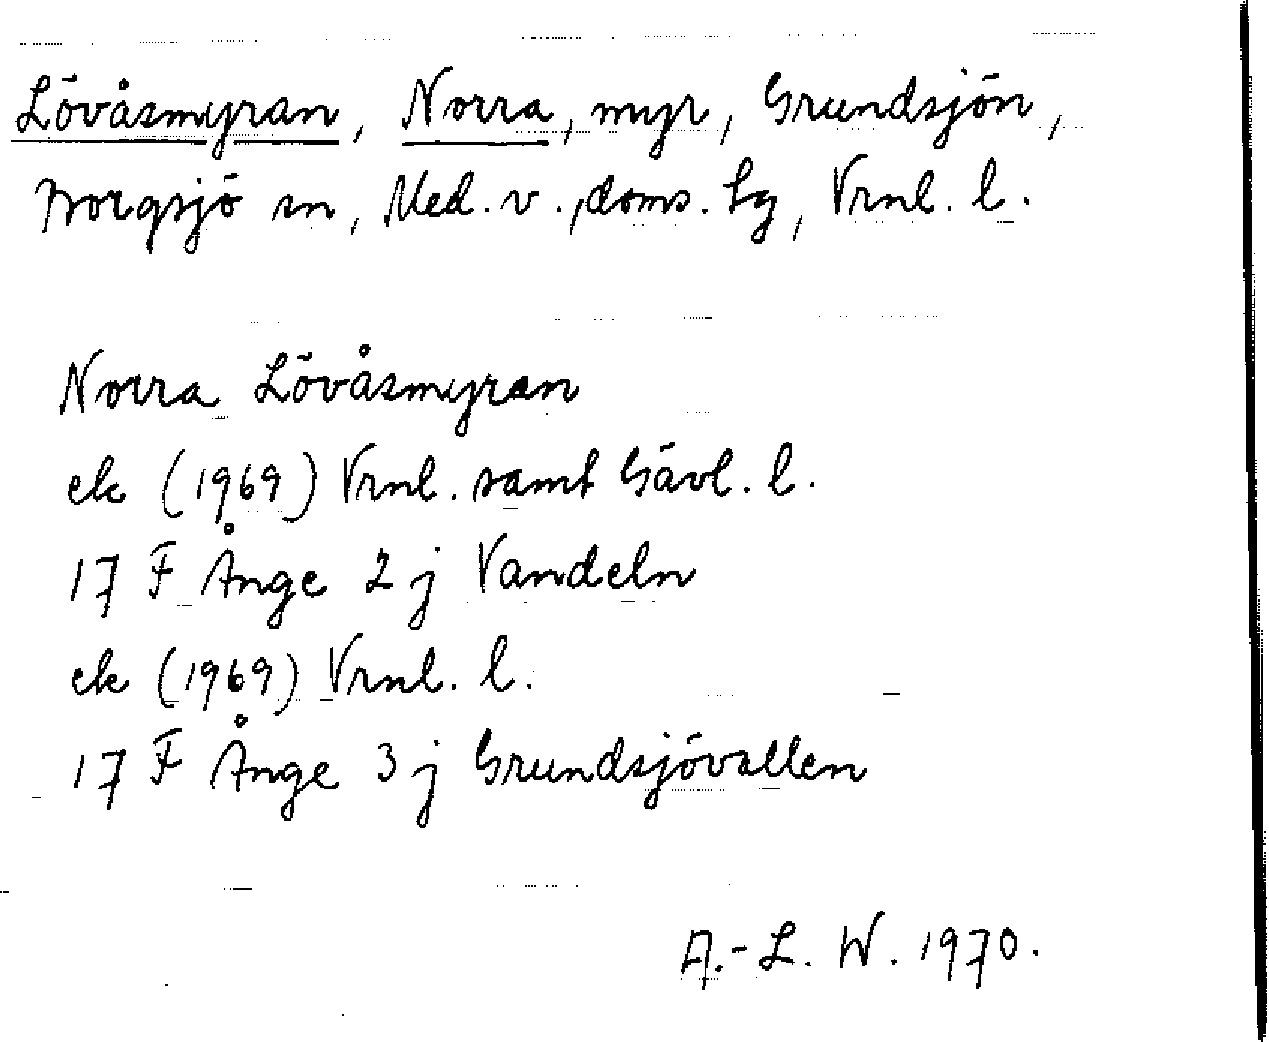 Lövåsmyran, Norra, myr, Grundsjön,
Borgsjö sn, Med. v., doms. hg, Vrnl. l.
Norra Lövåsmyran
ek (1969) Vrnl. samt Gävl. l.
17 F Ånge 2 j Vandeln
ek (1969) Vrnl. l.
17 F Ånge 3 j Grundsjövallen
A.-L. W. 1970.